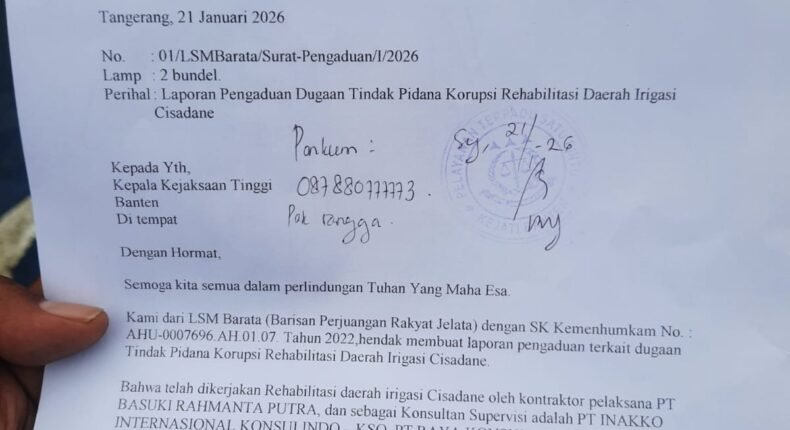 Tangerang, 21 Januari 2026
No. : 01/LSMBarata/Surat-Pengaduan/I/2026
Lamp : 2 bundel.
Perihal : Laporan Pengaduan Dugaan Tindak Pidana Korupsi Rehabilitasi Daerah Irigasi
Cisadane
Penkum :
Sg, 21/1-26
Kepada Yth,
Kepala Kejaksaan Tinggi
087880777773.
Banten
Di tempat
Pak rangga.
PELAYANAN TERPADU SATU
KEJATI
Dengan Hormat,
Semoga kita semua dalam perlindungan Tuhan Yang Maha Esa.
Kami dari LSM Barata (Barisan Perjuangan Rakyat Jelata) dengan SK Kemenhumkam No. :
AHU-0007696.AH.01.07. Tahun 2022,hendak membuat laporan pengaduan terkait dugaan
Tindak Pidana Korupsi Rehabilitasi Daerah Irigasi Cisadane.
Bahwa telah dikerjakan Rehabilitasi daerah irigasi Cisadane oleh kontraktor pelaksana PT
BASUKI RAHMANTA PUTRA, dan sebagai Konsultan Supervisi adalah PT INAKKO
INTERNASIONAL KONSULINDO - KSO PT RAYA